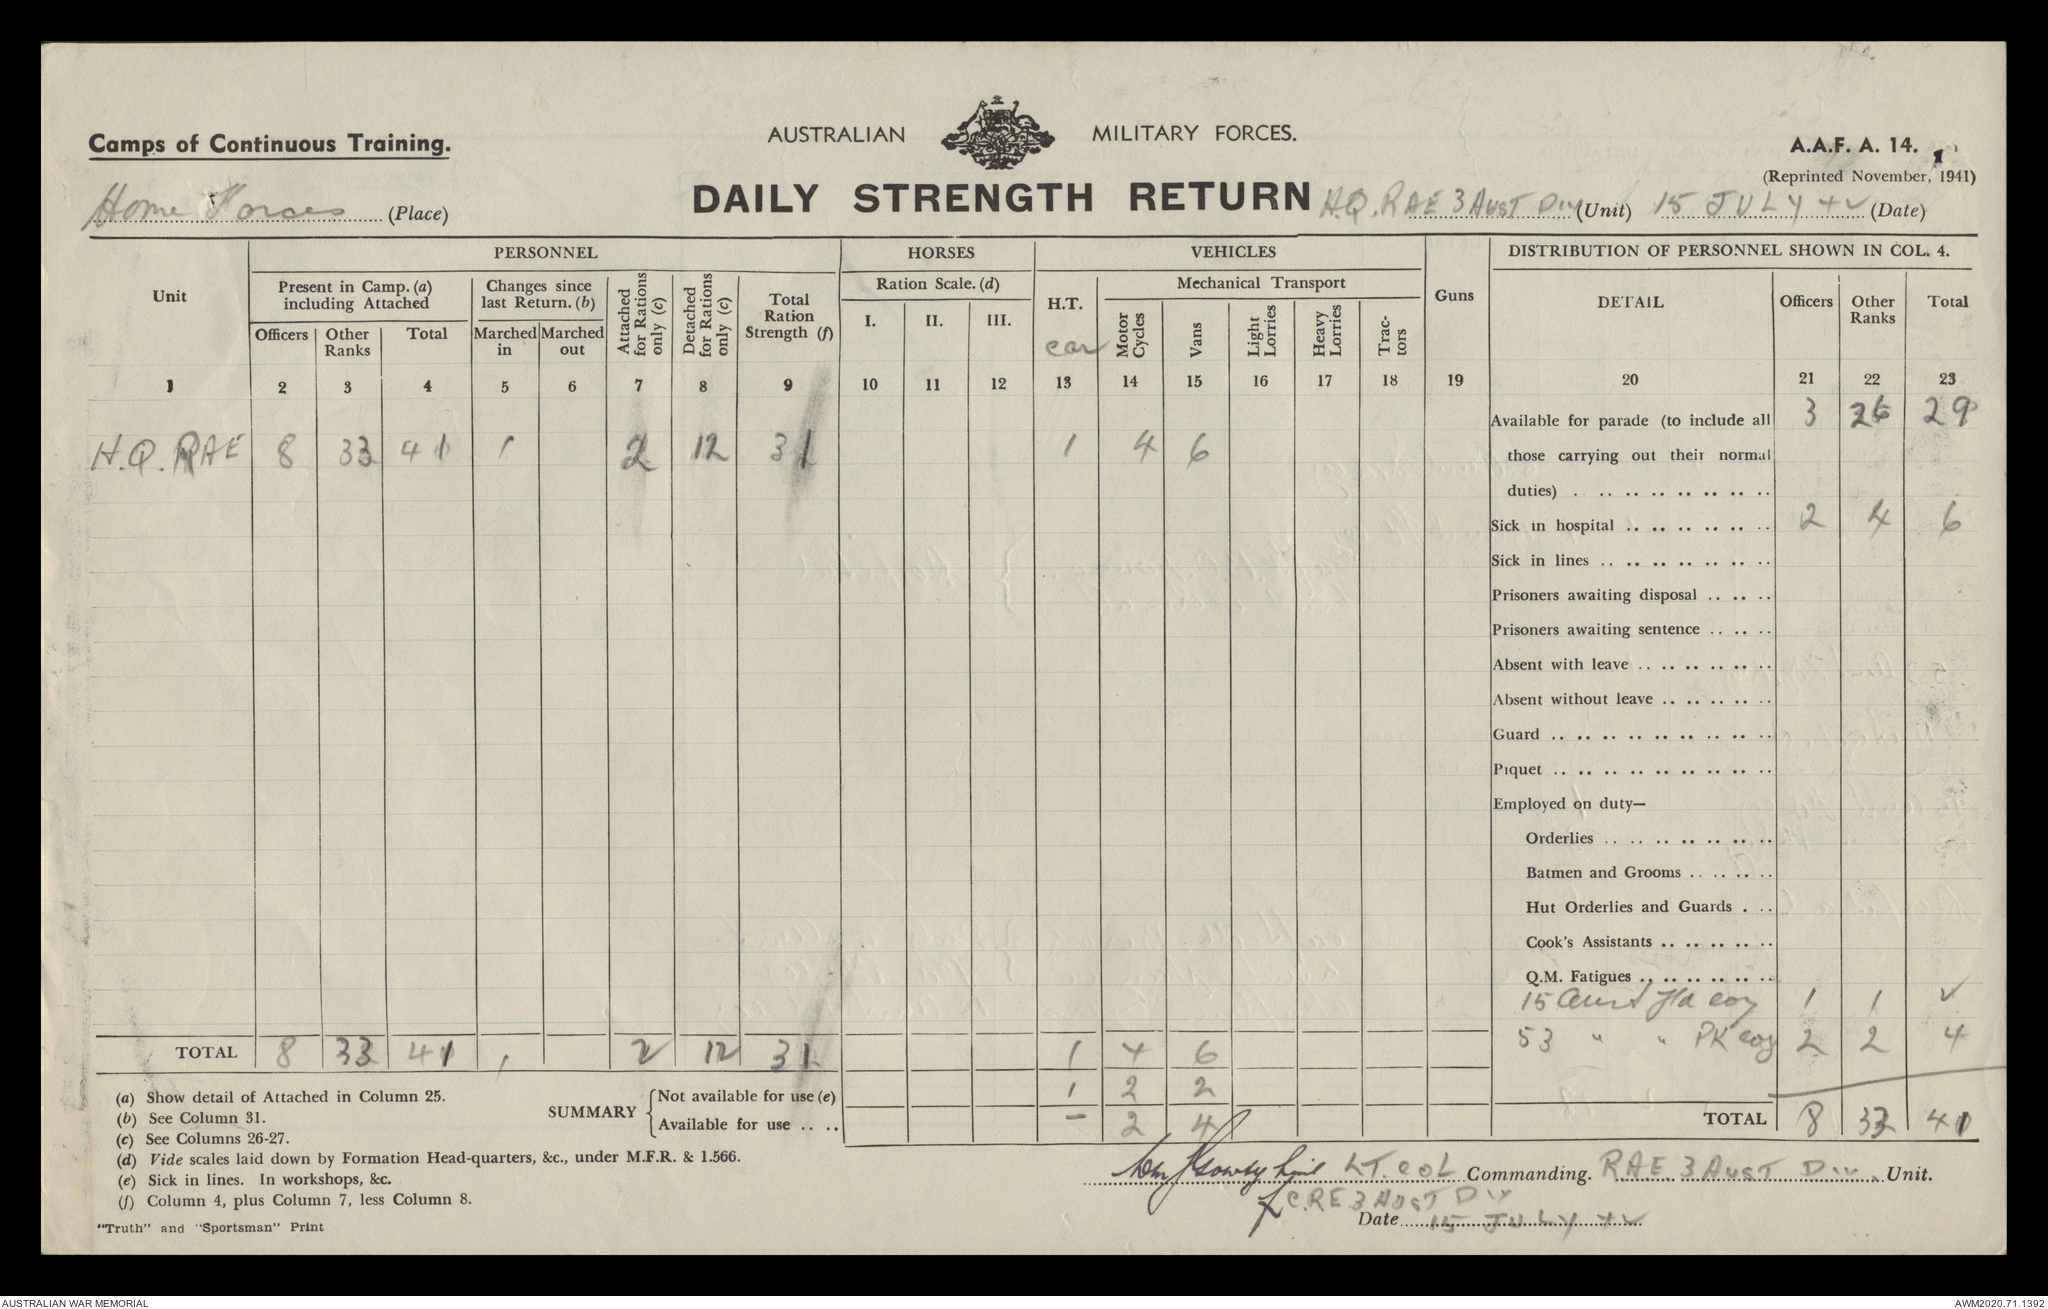 Camps of Continuous Training.
AUSTRALIAN MILITARY FORCES.
A.A.F. A. 14.
(Reprinted November, 1941)
Home Forces (Place)
DAILY STRENGTH RETURN H.Q. RAE 3 AUST DIV (Unit) 15 JULY 42 (Date)
PERSONNEL HORSES VEHICLES DISTRIBUTION OF PERSONNEL SHOWN IN COL. 4.
Unit Present in Camp. (a) including Attached Changes since last Return. (b) Attached for Rations only (c) Detached for Rations only (c) Total Ration Strength (f) Ration Scale. (d) H.T. Mechanical Transport Guns DETAIL Officers Other Ranks Total
Officers Other Ranks Total Marched in Marched out I. II. III. car Motor Cycles Vans Light Lorries Heavy Lorries Trac-tors
1 2 3 4 5 6 7 8 9 10 11 12 13 14 15 16 17 18 19 20 21 22 23
Available for parade (to include all 3 26 29
H.Q. RAE 8 33 41 1 2 12 31 1 4 6
those carrying out their normal
duties) . .. .. .. .. .. .. ..
Sick in hospital .. .. .. .. .. .. 2 4 6
Sick in lines .. .. .. .. .. .. ..
Prisoners awaiting disposal .. .. ..
Prisoners awaiting sentence .. .. ..
Absent with leave .. .. .. .. .. ..
Absent without leave .. .. .. .. ..
Guard .. .. .. .. .. .. .. .. ..
Piquet .. .. .. .. .. .. .. .. ..
Employed on duty—
Orderlies .. .. .. .. .. .. ..
Batmen and Grooms .. .. .. ..
Hut Orderlies and Guards . ..
Cook's Assistants .. .. .. .. ..
Q.M. Fatigues .. .. .. .. .. ..
15 Aust Fd coy 1 1 2
53 " " PK coy 2 2 4
TOTAL 8 33 41 1 2 12 31 1 4 6
SUMMARY Not available for use (e) 1 2 2
Available for use .. .. – 2 4
TOTAL 8 33 41
(a) Show detail of Attached in Column 25.
(b) See Column 31.
(c) See Columns 26-27.
(d) Vide scales laid down by Formation Head-quarters, &c., under M.F.R. & 1.566.
(e) Sick in lines. In workshops, &c.
(f) Column 4, plus Column 7, less Column 8.
"Truth" and "Sportsman" Print
LT. COL Commanding. RAE 3 AUST DIV. Unit.
C.RE 3 AUST DIV
Date 15 JULY 42
AUSTRALIAN WAR MEMORIAL
AWM2020.71.1392